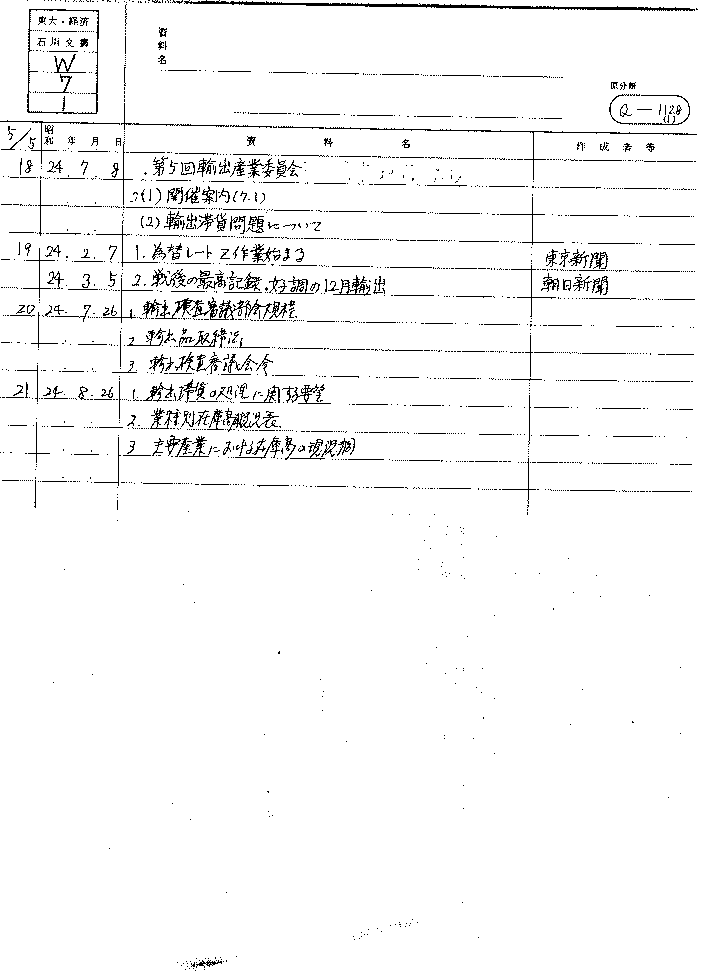 東大・経済
石川文書
W
7
1
資料名
原分類
Q-1128
(1)
5/5 昭和 年 月 日 資料名 作成者等
18 24. 7. 8 第5回輸出産業委員会
(1) 開催案内(7.1)
(2) 輸出滞貨問題について
19 24. 2. 7 1. 為替レートで作業始まる 東京新聞
24. 3. 5 2. 戦後の最高記録、好調の12月輸出 朝日新聞
20 24. 7. 26 1. 輸出検査審議部会規程
2 輸出品取締法
3. 輸出検査審議会令
21 24. 8. 26 1. 輸出滞貨の処理に関する要望
2. 業種別在庫高概況表
3 主要産業における在庫高の現況調